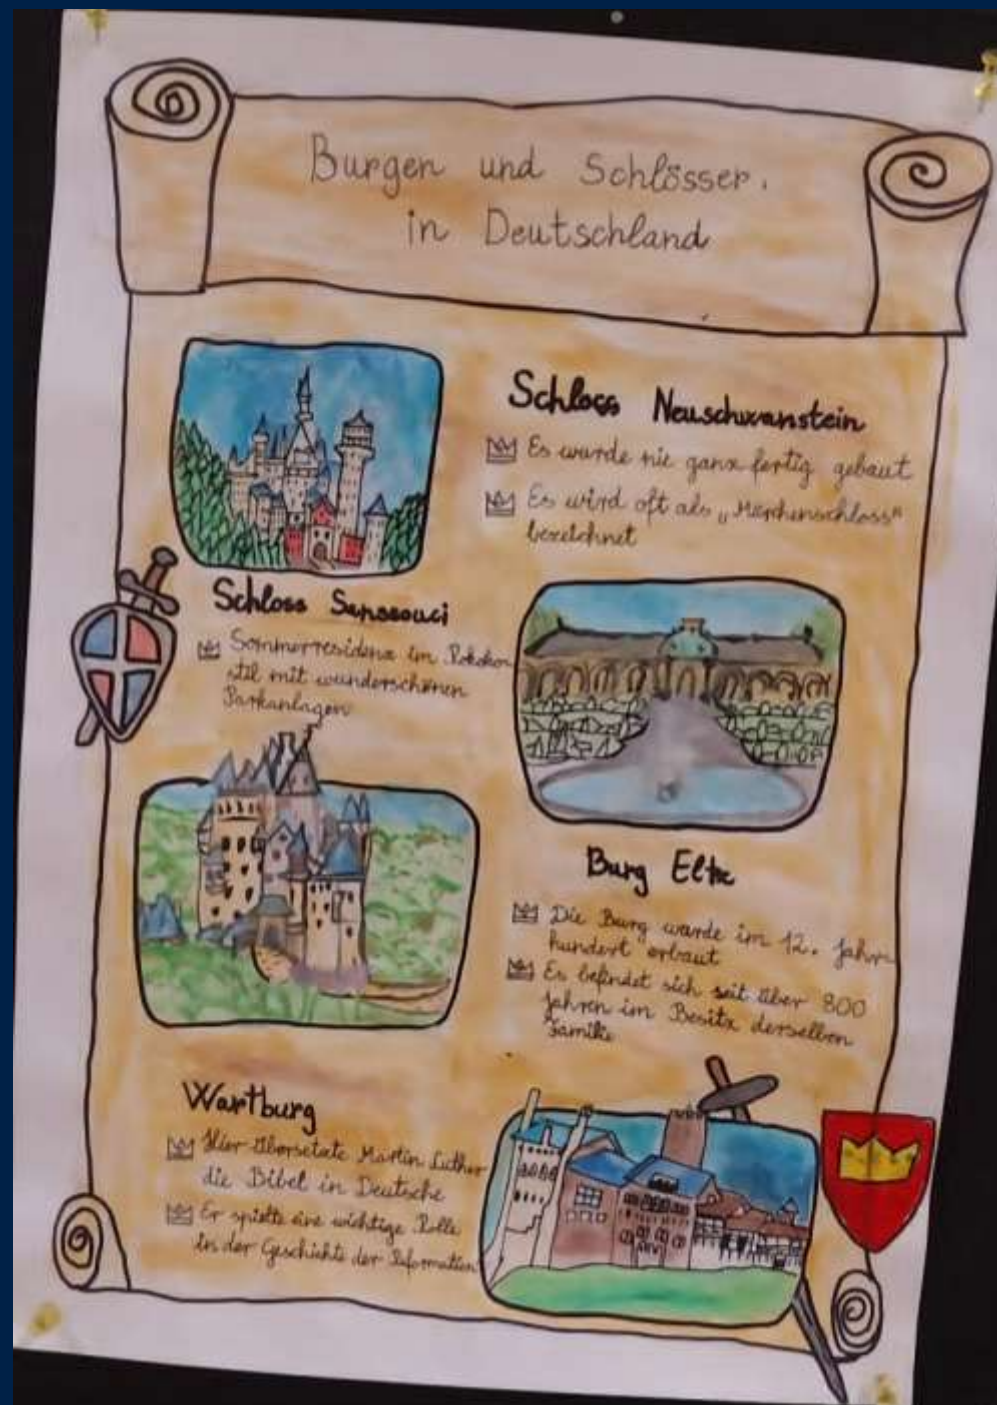 Burgen und Schlösser
in Deutschland
Schloss Neuschwanstein
Es wurde nie ganz fertig gebaut
Es wird oft als „Märchenschloss"
bezeichnet
Schloss Sanssouci
Sommerresidenz im Rokoko
stil mit wunderschönen
Parkanlagen
Burg Eltz
Die Burg wurde im 12. Jahr
hundert erbaut
Es befindet sich seit über 800
Jahren im Besitz derselben
Familie
Wartburg
Hier übersetzte Martin Luther
die Bibel in Deutsche
Er spielte eine wichtige Rolle
in der Geschichte der Reformation